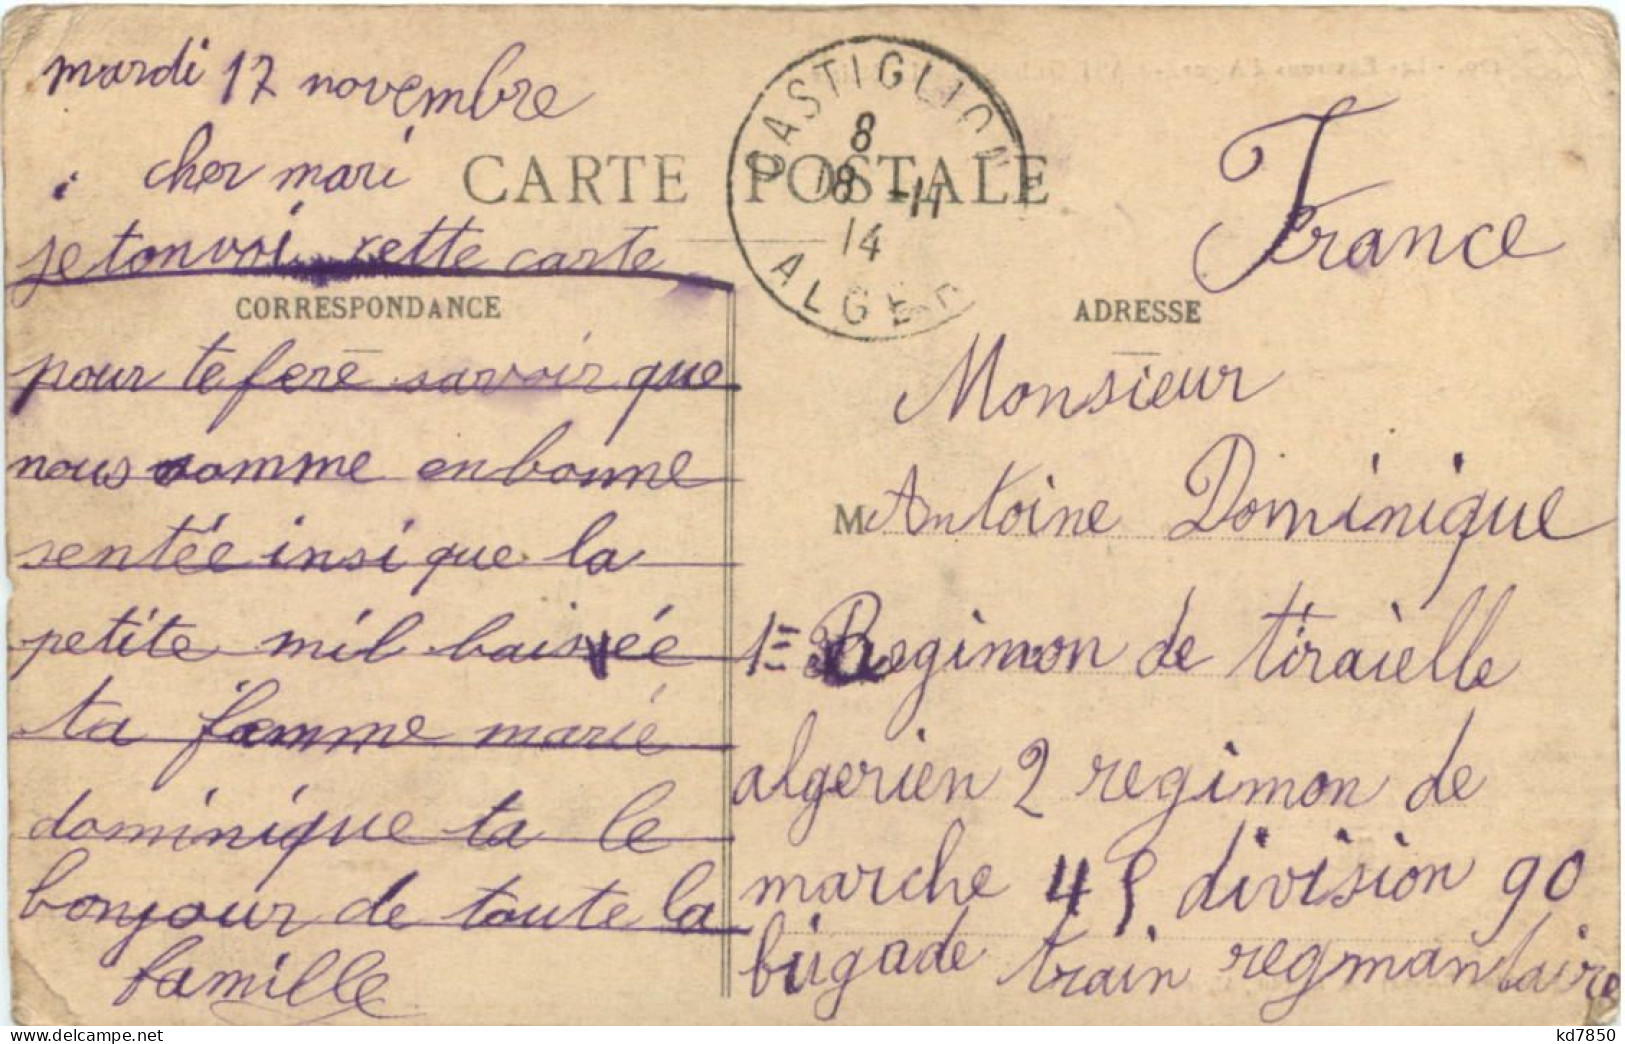 mardi 17 novembre
cher mari
CARTE POSTALE
je tonvoi cette carte
CORRESPONDANCE
pour te fere savoir que
nous somme en bonne
sentée insi que la
petite mil baisée
ta famme marie
dominique ta le
bonjour de toute la
famille
CASTIGLION
8
18 -11
14
ALGER
France
ADRESSE
Monsieur
M Antoine Dominique
1= Regimon de tiraielle
algerien 2 regimon de
marche 45 division 90
brigade train regmantaire
kd7850